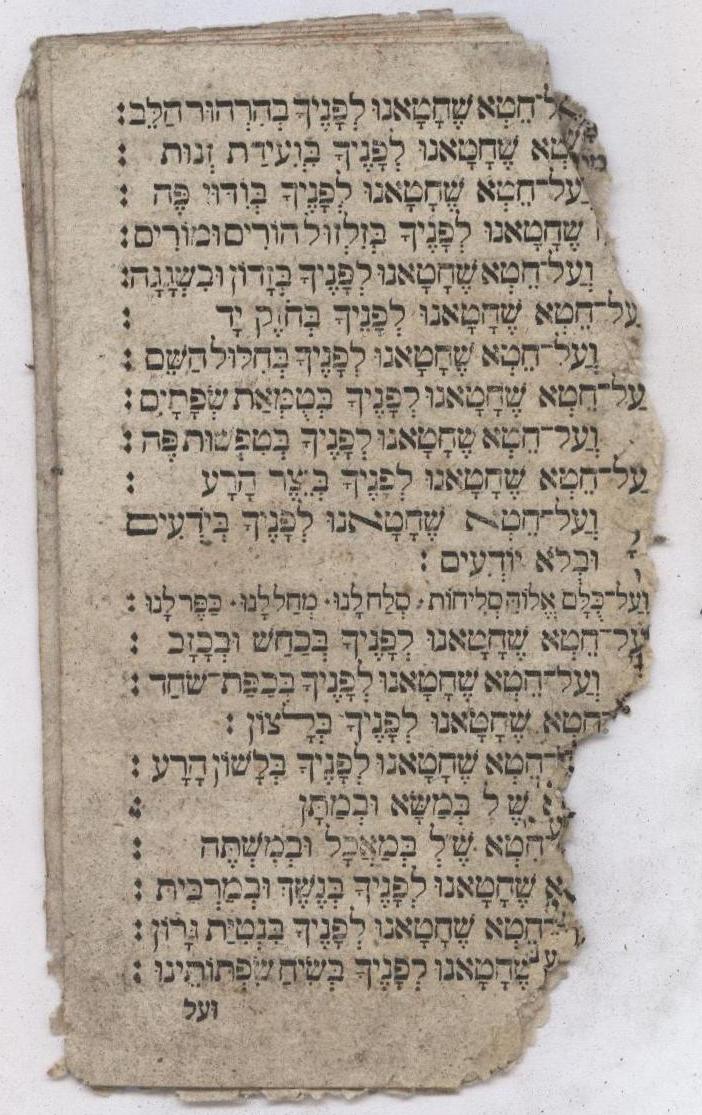 חֵטְא שֶׁחָטָאנוּ לְפָנֶיךָ בְּהִרְהוּר הַלֵּב׃
שֶׁחָטָאנוּ לְפָנֶיךָ בִּוְעִידַת זְנוּת ׃
וְעַל־חֵטְא שֶׁחָטָאנוּ לְפָנֶיךָ בְּוִדּוּי פֶּה ׃
שֶׁחָטָאנוּ לְפָנֶיךָ בְּזִלְזוּל הוֹרִים וּמוֹרִים׃
וְעַל־חֵטְא שֶׁחָטָאנוּ לְפָנֶיךָ בְּזָדוֹן וּבִשְׁגָגָה׃
עַל־חֵטְא שֶׁחָטָאנוּ לְפָנֶיךָ בְּחֹזֶק יָד ׃
וְעַל־חֵטְא שֶׁחָטָאנוּ לְפָנֶיךָ בְּחִלּוּל הַשֵּׁם ׃
עַל־חֵטְא שֶׁחָטָאנוּ לְפָנֶיךָ בְּטֻמְאַת שְׂפָתָיִם ׃
וְעַל־חֵטְא שֶׁחָטָאנוּ לְפָנֶיךָ בְּטִפְשׁוּת פֶּה ׃
עַל־חֵטְא שֶׁחָטָאנוּ לְפָנֶיךָ בְּיֵצֶר הָרָע ׃
וְעַל־חֵטְא שֶׁחָטָאנוּ לְפָנֶיךָ בְּיֹדְעִים
וּבְלֹא יוֹדְעִים ׃
וְעַל־כֻּלָּם אֱלוֹהַּ סְלִיחוֹת · סְלַח לָנוּ · מְחַל לָנוּ · כַּפֶּר לָנוּ ׃
עַל־חֵטְא שֶׁחָטָאנוּ לְפָנֶיךָ בְּכַחַשׁ וּבְכָזָב ׃
וְעַל־חֵטְא שֶׁחָטָאנוּ לְפָנֶיךָ בְּכַפַּת־שֹׁחַד ׃
חֵטְא שֶׁחָטָאנוּ לְפָנֶיךָ בְּלָצוֹן ׃
חֵטְא שֶׁחָטָאנוּ לְפָנֶיךָ בְּלָשׁוֹן הָרָע ׃
שֶׁ׳ לְ׳ בְּמַשָּׂא וּבְמַתָּן ׃
חֵטְא שֶׁ׳ לְ׳ בְּמַאֲכָל וּבְמִשְׁתֶּה ׃
שֶׁחָטָאנוּ לְפָנֶיךָ בְּנֶשֶׁךְ וּבְמַרְבִּית ׃
חֵטְא שֶׁחָטָאנוּ לְפָנֶיךָ בִּנְטִיַּת גָּרוֹן ׃
שֶׁחָטָאנוּ לְפָנֶיךָ בְּשִׂיחַ שִׂפְתוֹתֵינוּ ׃
ועל